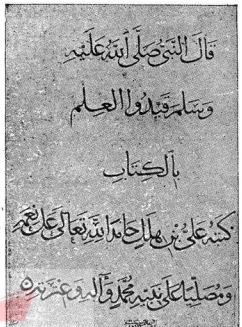 قَالَ النَّبِيُّ صَلَّى اللهُ عَلَيْهِ
وَسَلَّمَ قَيِّدُوا الْعِلْمَ
بِالْكِتَابِ
كتبه علي بن هلال حامدا لله تعالى على نعمه
ومصليا على نبيه محمد وآله وعترته